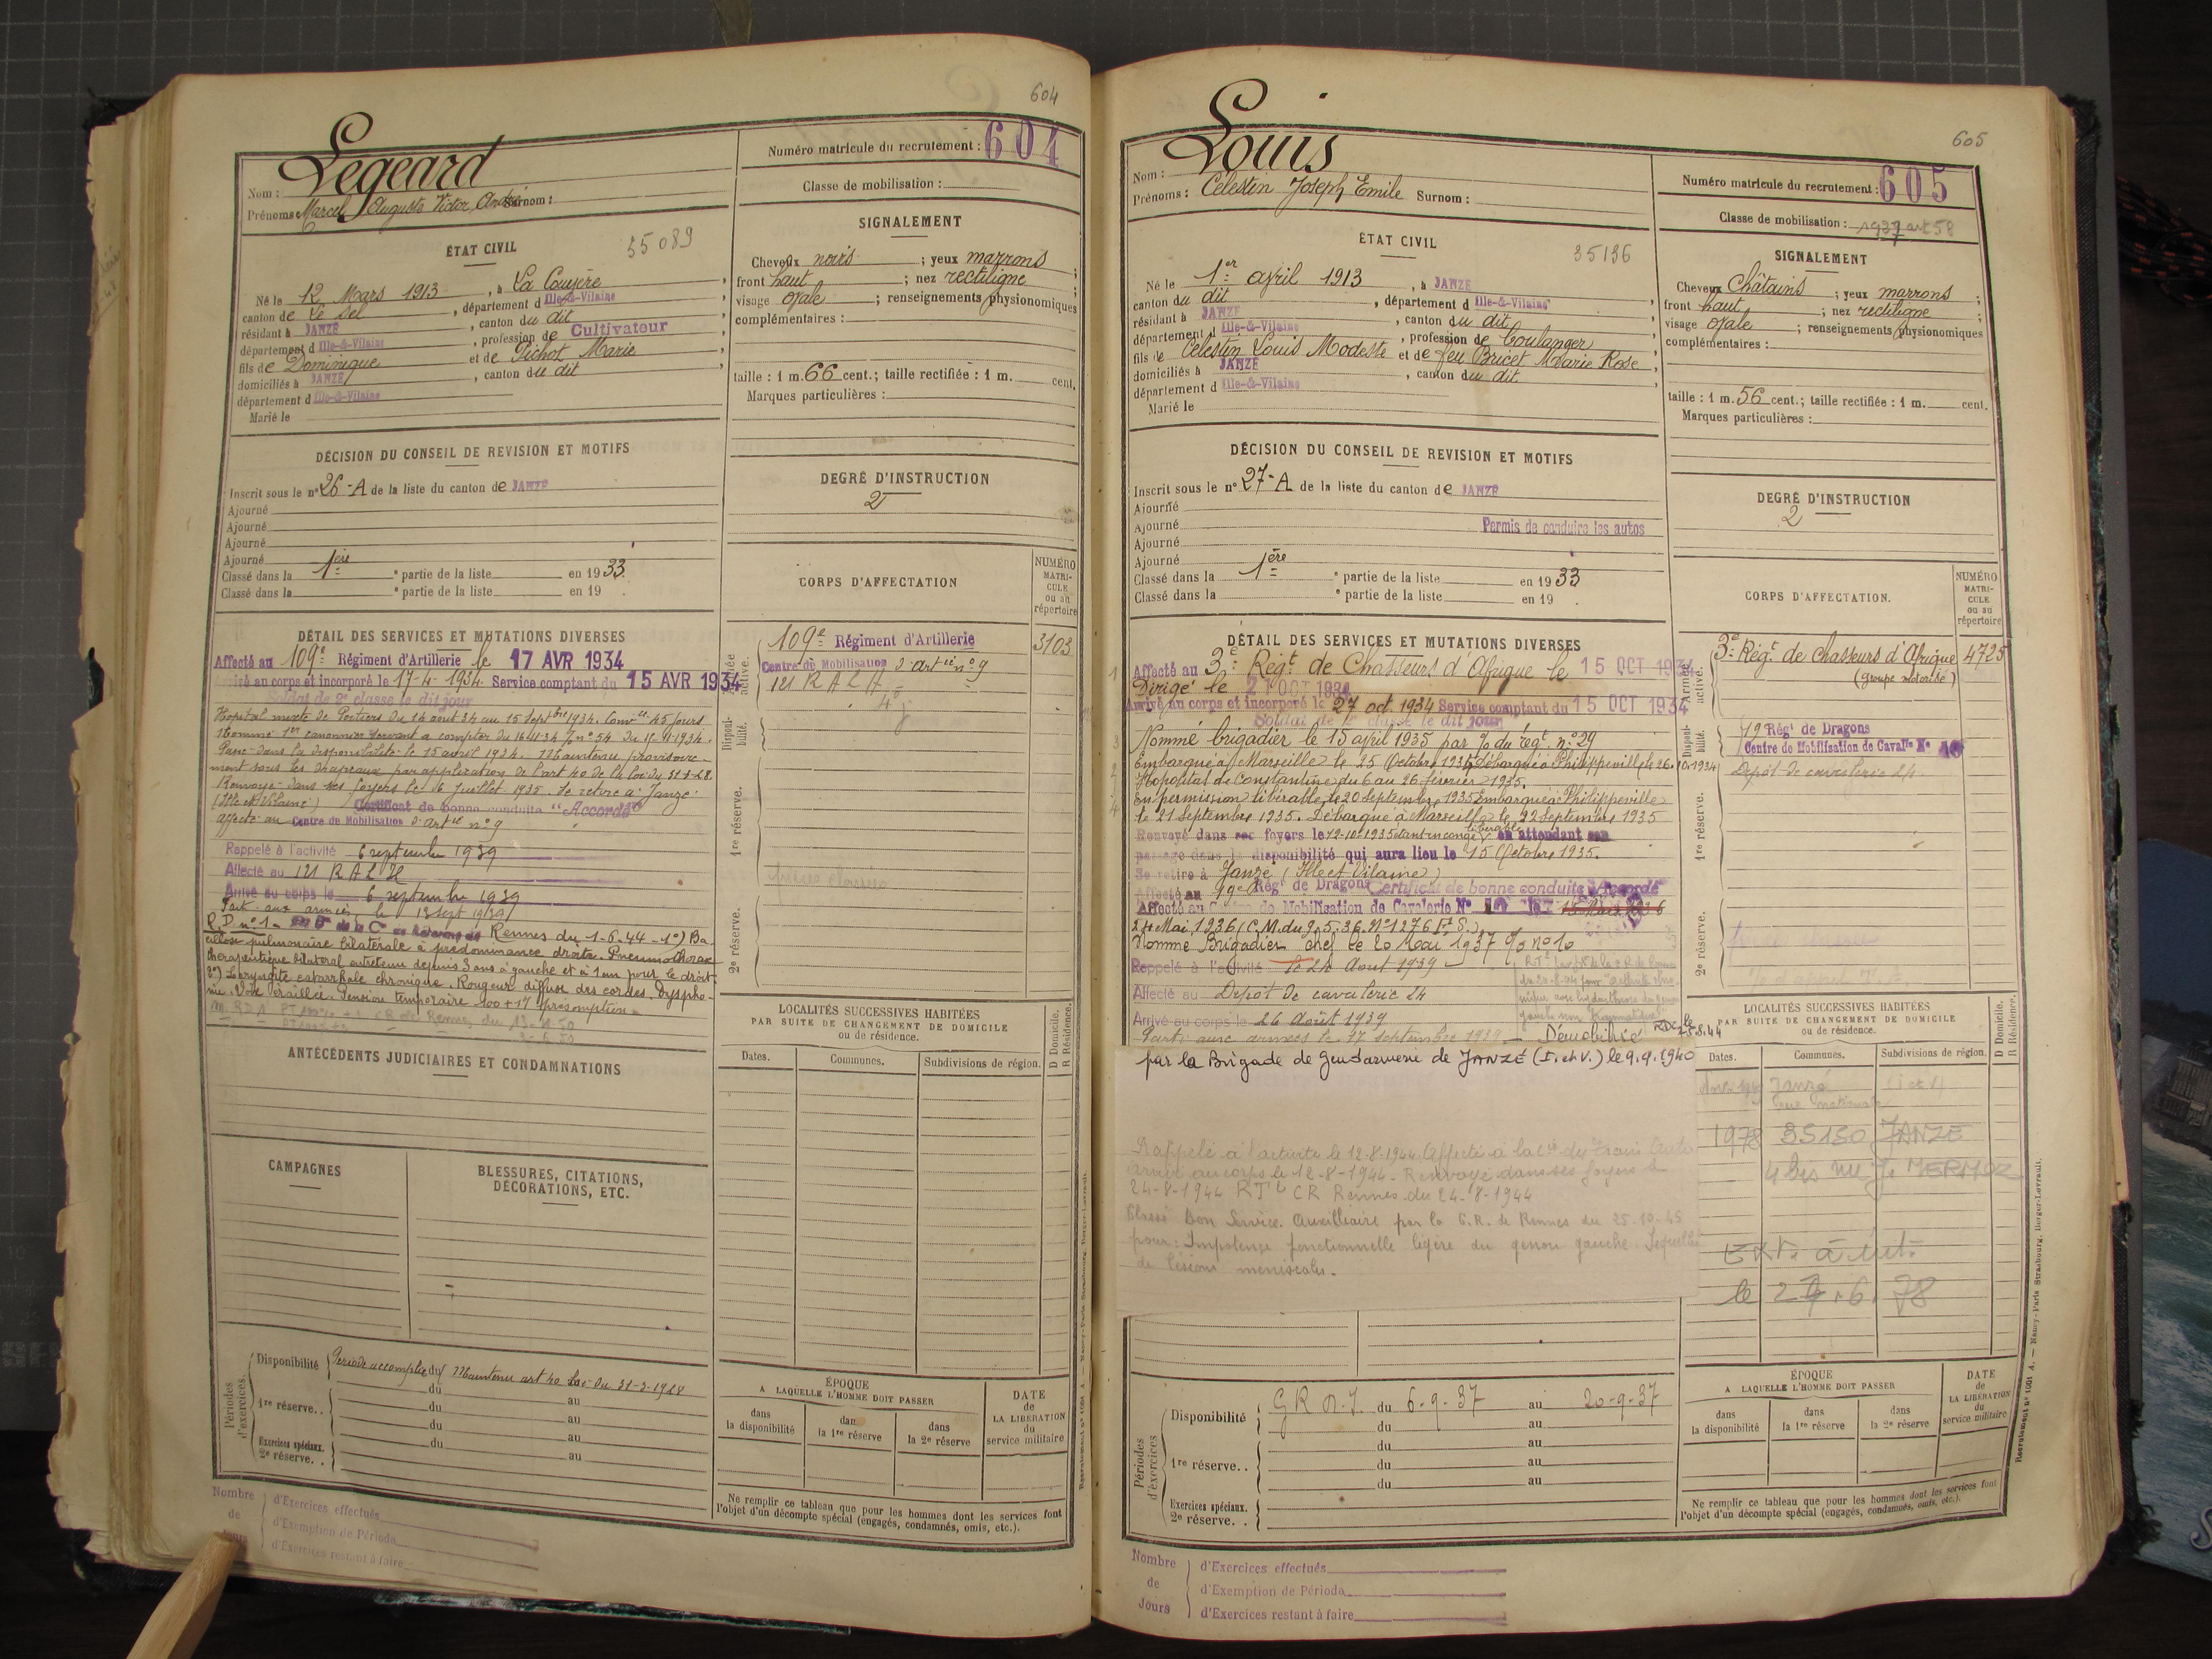 604
Legeard
Nom :
Prénoms : Marcel Auguste Victor André Surnom :
Numéro matricule du recrutement : 604
Classe de mobilisation :
ÉTAT CIVIL
35089
Né le 12 Mars 1913, à La Couyère,
canton de Le Sel, département d Ille-&-Vilaine,
résidant à JANZÉ, canton du dit,
département d Ille-&-Vilaine, profession de Cultivateur
fils de Dominique et de Pichot Marie
domiciliés à JANZÉ, canton du dit
département d Ille-&-Vilaine
Marié le
SIGNALEMENT
Cheveux noirs ; yeux marrons ;
front haut ; nez rectiligne ;
visage ovale ; renseignements physionomiques
complémentaires :
taille : 1 m. 66 cent.; taille rectifiée : 1 m. cent.
Marques particulières :
DÉCISION DU CONSEIL DE REVISION ET MOTIFS
Inscrit sous le n° 26-A de la liste du canton de JANZÉ
Ajourné
Ajourné
Ajourné
Ajourné
Classé dans la 1ère partie de la liste en 1933.
Classé dans la e partie de la liste en 19 .
DEGRÉ D'INSTRUCTION
2
CORPS D'AFFECTATION
NUMÉRO MATRICULE ou au répertoire
109e Régiment d'Artillerie 3103
Centre de Mobilisation d'artie n° 9
121 RALH
Armée active.
Disponibilité.
1re réserve.
2e réserve.
DÉTAIL DES SERVICES ET MUTATIONS DIVERSES
Affecté au 109e Régiment d'Artillerie le 17 AVR 1934
Arrivé au corps et incorporé le 17-4-1934. Service comptant du 15 AVR 1934
Soldat de 2e classe le dit jour
Hopital mixte de Poitiers du 14 aout 34 au 15 Septbre 1934. Convce 45 jours
Nommé 1er canonnier servant a compter du 16-11-34 n° 54 du 15-11-1934.
Passe dans la disponibilité le 15 avril 1934. Maintenu provisoire-
ment sous les drapeaux par application de l'art 40 de la loi du 31-3-28.
Renvoyé dans ses foyers le 16 juillet 1935. Se retire à Janzé
(Ille et Vilaine) Certificat de bonne conduite "Accordé"
affecté au Centre de Mobilisation d'artie n° 9
Rappelé à l'activité 6 septembre 1939
Affecté au 121 RALH
Arrivé au corps le 6 septembre 1939
Part aux armées le 13 sept 1939
R.D. n° 1. Rennes du 1-6-44 - 1°) Ba-
cillose pulmonaire bilatérale à prédominance droite. Pneumothorax
thérapeutique bilatéral entretenu depuis 3 ans à gauche et à 1 an pour le droit.
2°) Laryngite catarrhale chronique. Rougeur diffuse des cordes. Dyspho-
nie. Voix éraillée. Pension temporaire 100+17 présomption.
ANTÉCÉDENTS JUDICIAIRES ET CONDAMNATIONS
CAMPAGNES
BLESSURES, CITATIONS, DÉCORATIONS, ETC.
LOCALITÉS SUCCESSIVES HABITÉES
PAR SUITE DE CHANGEMENT DE DOMICILE
ou de résidence.
D Domicile.
R Résidence.
Dates. Communes. Subdivisions de région.
Périodes d'exercices.
Disponibilité Période accomplie du Maintenu art 40 Loi du 31-3-1928
du au
1re réserve. . du au
du au
Exercices spéciaux. du au
2e réserve. .
ÉPOQUE
A LAQUELLE L'HOMME DOIT PASSER
DATE de LA LIBÉRATION du service militaire
dans la disponibilité
dans la 1re réserve
dans la 2e réserve
Ne remplir ce tableau que pour les hommes dont les services font
l'objet d'un décompte spécial (engagés, condamnés, omis, etc.).
Nombre de Jours
d'Exercices effectués
d'Exemption de Période
d'Exercices restant à faire
605
Louis
Nom :
Prénoms : Célestin Joseph Emile Surnom :
Numéro matricule du recrutement : 605
Classe de mobilisation : 1937 art 58
ÉTAT CIVIL
35136
Né le 1er avril 1913, à JANZÉ
canton du dit, département d Ille-&-Vilaine,
résidant à JANZÉ, canton du dit,
département d Ille-&-Vilaine, profession de boulanger,
fils de Célestin Louis Modeste et de feu Bricet Marie Rose,
domiciliés à JANZÉ, canton du dit,
département d Ille-&-Vilaine
Marié le
SIGNALEMENT
Cheveux Châtains ; yeux marrons ;
front haut ; nez rectiligne ;
visage ovale ; renseignements physionomiques
complémentaires :
taille : 1 m. 56 cent.; taille rectifiée : 1 m. cent.
Marques particulières :
DÉCISION DU CONSEIL DE REVISION ET MOTIFS
Inscrit sous le n° 27-A de la liste du canton de JANZÉ
Ajourné
Ajourné Permis de conduire les autos
Ajourné
Ajourné
Classé dans la 1ère partie de la liste en 1933
Classé dans la e partie de la liste en 19 .
DEGRÉ D'INSTRUCTION
2
CORPS D'AFFECTATION.
NUMÉRO MATRICULE ou au répertoire
3e Régt de chasseurs d'Afrique 4725
(groupe motorisé)
19 Régt de Dragons
Centre de Mobilisation de Cavalie N° 10
Dépôt de cavalerie 24
Armée active.
Disponibilité.
1re réserve.
2e réserve.
DÉTAIL DES SERVICES ET MUTATIONS DIVERSES
Affecté au 3e Régt de Chasseurs d'Afrique le 15 OCT 1934
Dirigé le 21 OCT 1934
Arrivé au corps et incorporé le 27 oct. 1934 Service comptant du 15 OCT 1934
Soldat de 2e classe le dit jour
Nommé brigadier le 15 avril 1935 par %o du régt. n° 29
Embarqué à Marseille le 25 Octobre 1934 débarqué à Philippeville le 26.10.1934
Hopital de Constantine du 6 au 26 février 1935.
En permission libérable le 20 septembre 1935 Embarqué à Philippeville
le 21 septembre 1935. Débarqué à Marseille le 22 septembre 1935
Renvoyé dans ses foyers le 12-10-1935 étant en congé libérable en attendant son
passage dans la disponibilité qui aura lieu le 15 Octobre 1935.
Se retire à Janzé (Ille et Vilaine)
Affecté au 19e Régt de Dragons Certificat de bonne conduite "Accordé"
Affecté au Centre de Mobilisation de Cavalerie N° 10 le 15 Mars 1936
24 Mai 1936 (C.M. du 9.5.36. N° 1276
Nommé Brigadier chef le 20 Mai 1937 %o n° 10
Rappelé à l'activité le 24 Aout 1939
Affecté au Dépôt de cavalerie 24
Arrivé au corps le 26 Août 1939
Parti aux armées le 17 septembre 1939 - Démobilisé
par la Brigade de Gendarmerie de JANZÉ (I. et V.) le 9.9.1940
Rappelé à l'activité le 12-8-1944. Affecté à la Cie du Train
arrivé au corps le 12-8-1944. Renvoyé dans ses foyers le
24-8-1944 RTL CR Rennes du 24-8-1944
Classé Bon Service Auxilliaire par la C.R. de Rennes du 25-10-45
pour : Impotence fonctionnelle légère du genou gauche. Séquelles
de lésions méniscales.
LOCALITÉS SUCCESSIVES HABITÉES
PAR SUITE DE CHANGEMENT DE DOMICILE
ou de résidence.
D Domicile.
R Résidence.
Dates. Communes. Subdivisions de région.
Janzé (I et V)
1978 35150 JANZE
4 bis rue J. MERMOZ
le 27.6.78
Périodes d'exercices
Disponibilité du 6-9-37 au 20-9-37
du au
1re réserve. . du au
du au
du au
Exercices spéciaux.
2e réserve. .
ÉPOQUE
A LAQUELLE L'HOMME DOIT PASSER
DATE de LA LIBÉRATION du service militaire
dans la disponibilité
dans la 1re réserve
dans la 2e réserve
Ne remplir ce tableau que pour les hommes dont les services font
l'objet d'un décompte spécial (engagés, condamnés, omis, etc.).
Recrutement n° 1001 A. — Nancy-Paris-Strasbourg. Berger-Levrault.
Nombre de Jours
d'Exercices effectués
d'Exemption de Période
d'Exercices restant à faire